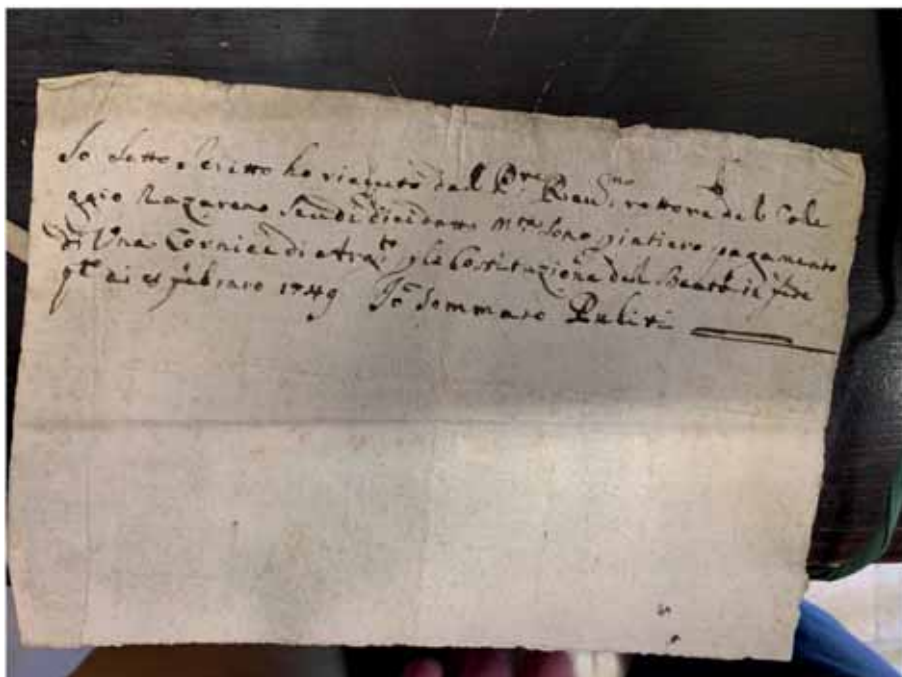 Io Sotto Scritto ho riceuto dal P.re Reu.mo rettore del Cole
ggio Nazareno Scudi dicidotto Mta Sono p intiero pagamento
di Una Cornice di p la del Beato in fede
q.to di febraro 1749 Io Tommaso Puliti